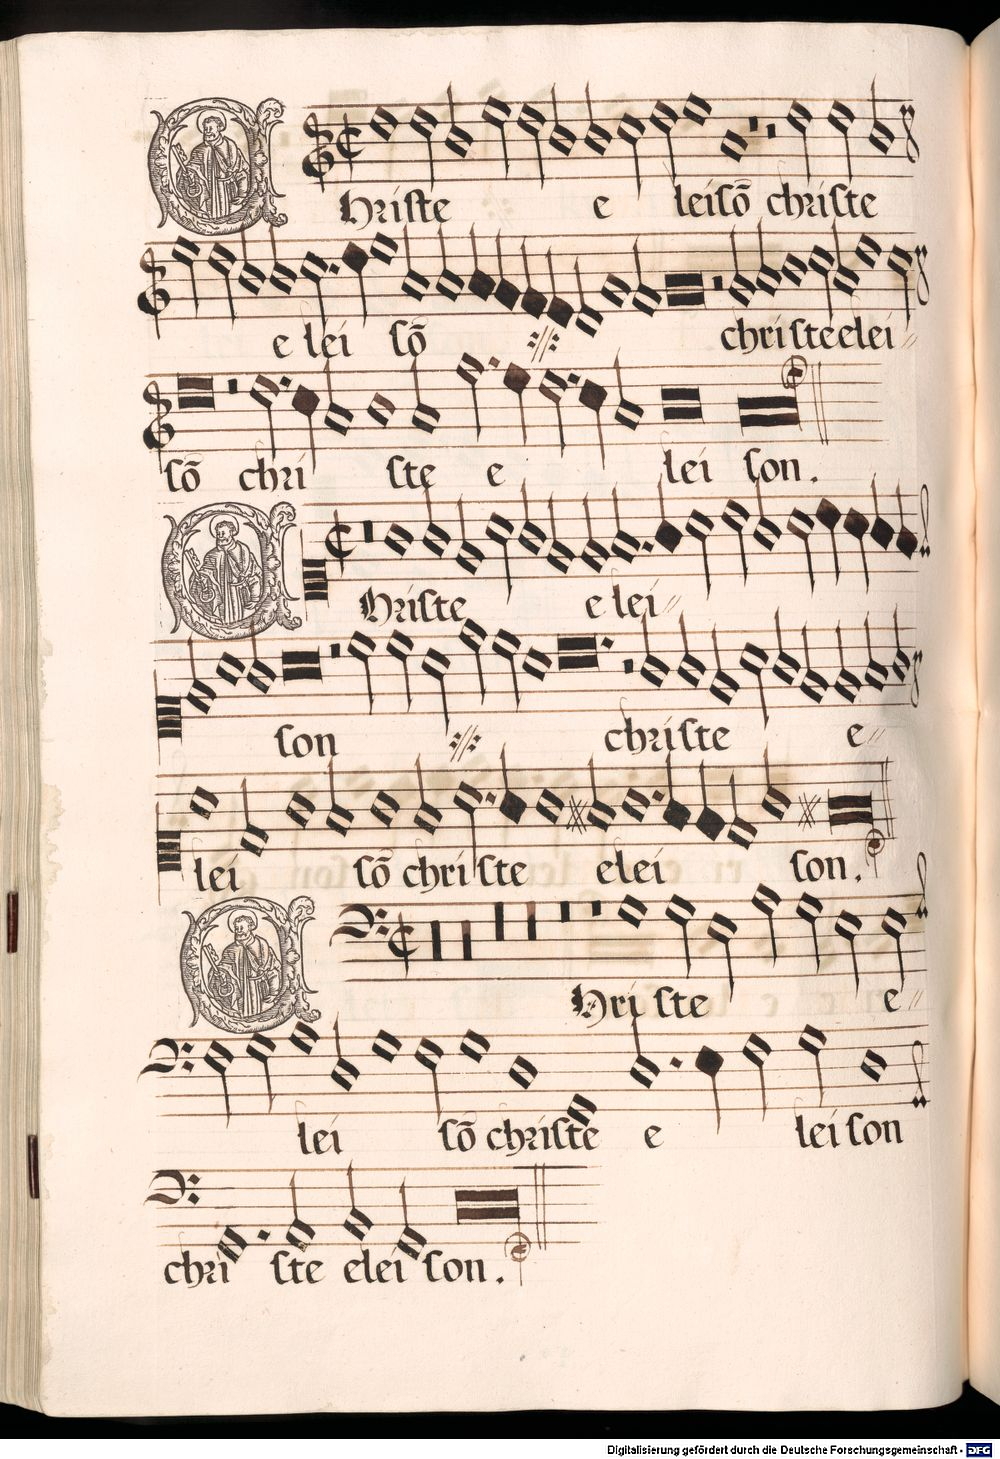 CHriste e leisō christe
e lei sō christe elei
sō chri ste e lei son.
CHriste e lei
son christe e
lei sō christe elei son.
CHriste e
lei sō christe e lei son
christe elei son.
Digitalisierung gefördert durch die Deutsche Forschungsgemeinschaft - DFG